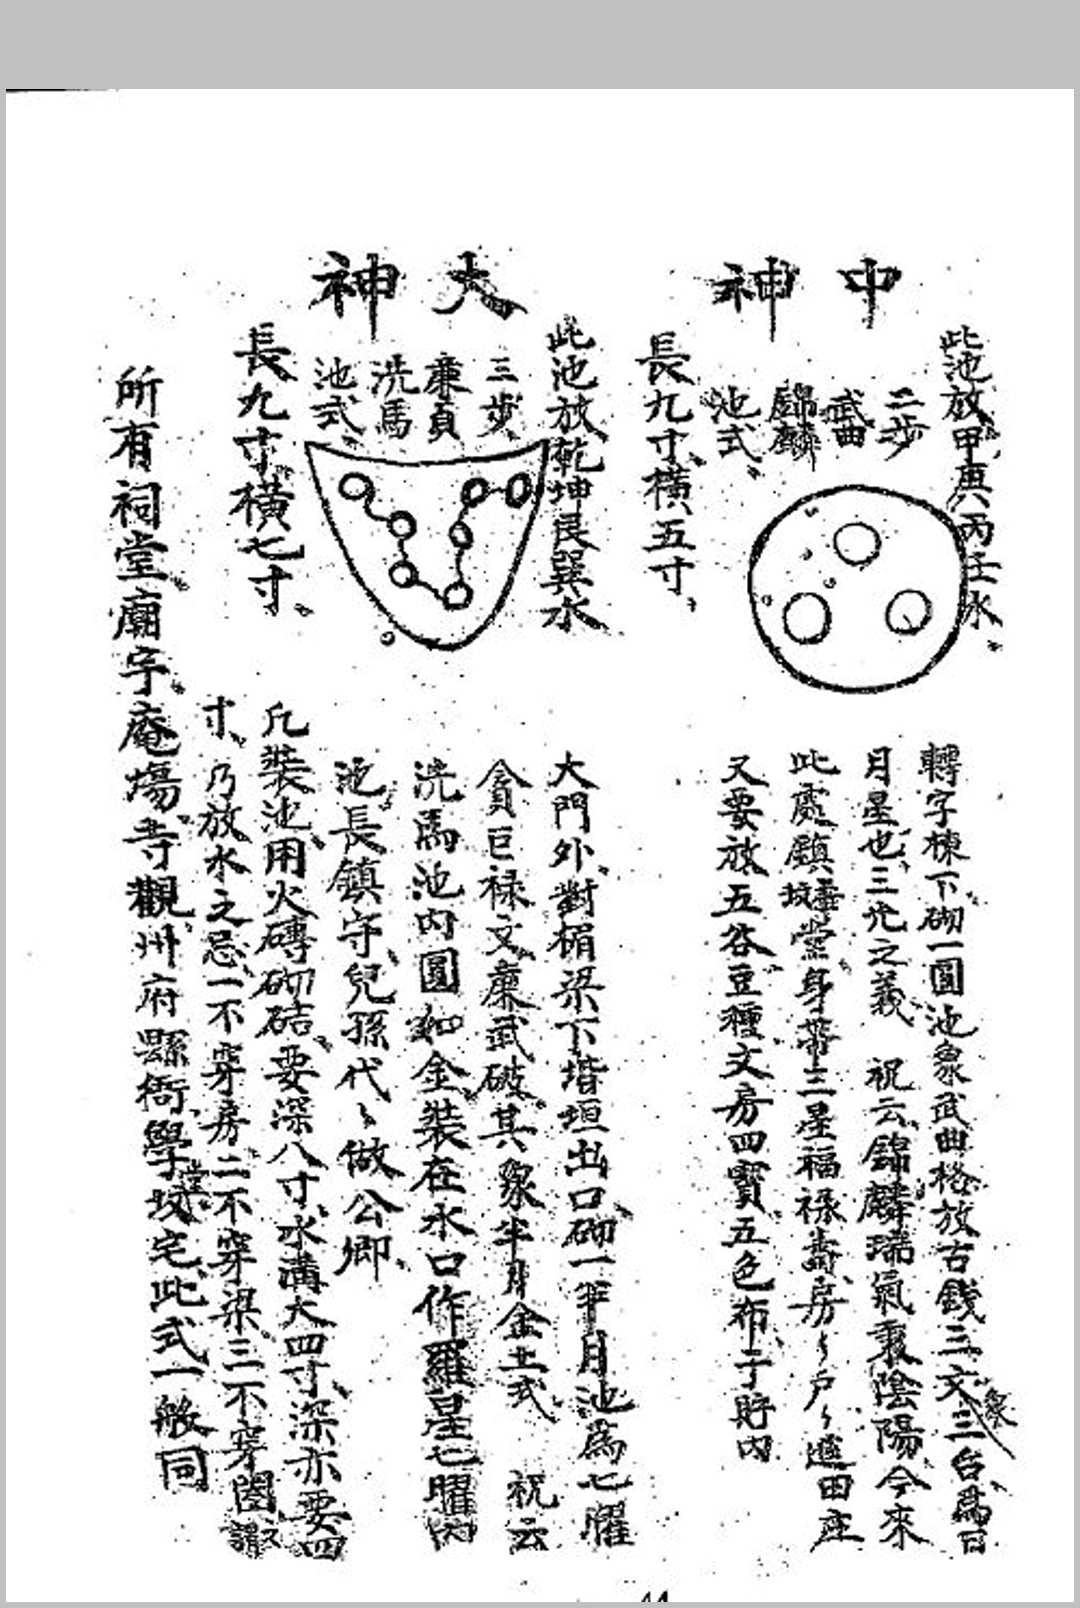 中神
此池放甲庚丙壬水
二步
武曲
錦麟
池式
長九寸橫五寸
轉字棟下砌一圓池象武曲格放古錢三文象三台為日
月星也三光之義 祝云錦麟瑞氣秉陰陽今來
此處鎮 堂身帶三星福祿壽房〻戶〻進田庄
又要放五谷豆種文房四寶五色布于貯內
大神
此池放乾坤艮巽水
三步
廉貞
洗馬
池式
長九寸橫七寸
大門外對楣梁下堦垣出口砌一半月池為七曜
貪巨祿文廉武破其象半月金土式 祝云
洗馬池內圓如金裝在水口作羅星七曜內
池長鎮守兒孫代〻做公卿
凡裝池用火磚砌結要深八寸水溝大四寸深亦要四
寸乃放水之忌一不穿房二不穿梁三不穿
所有祠堂廟宇庵塲寺觀州府縣衙學 坟宅此式一般同
44